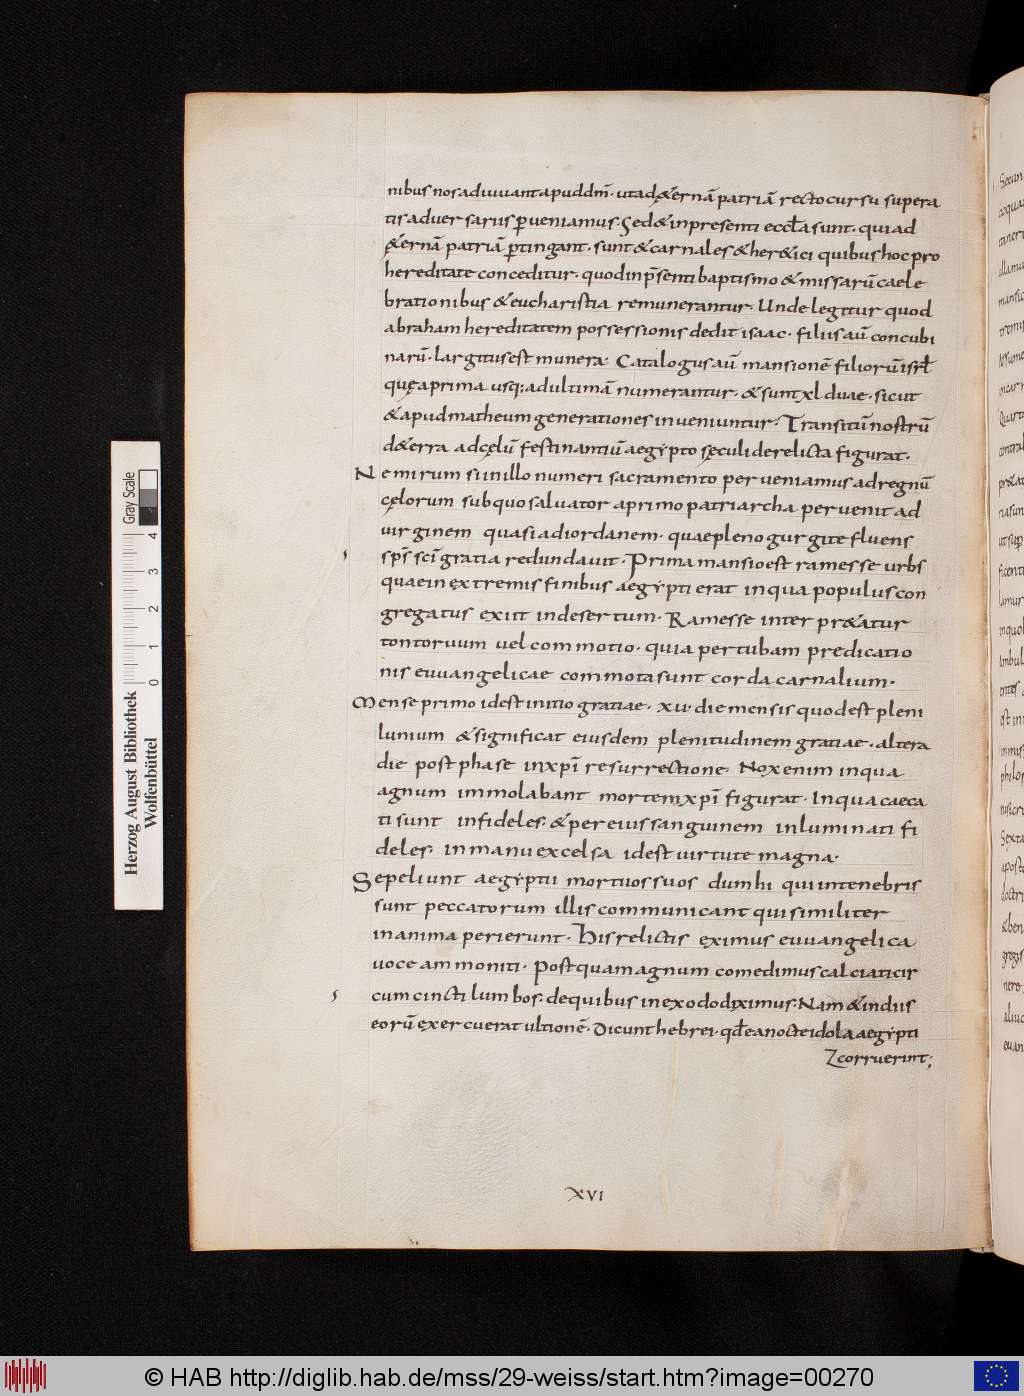 nibus nos adiuuant apud dm̅· ut ad &ernā patriā recto cursu supera
tis aduersariis ꝑueniamus· Sed & in presenti eccl̅a sunt· qui ad
&ernā patriā ꝑtingant· sunt & carnales & her&ici quibus hoc pro
hereditate conceditur· quod in p̅senti baptismo & missarū caele
brationibus & eucharistia remunerantur· Unde legitur quod
abraham hereditatem possessionis dedit isaac· filiis aū concubi
narū· largitus est munera· Catalogus aū mansionē filiorū isrl̅
quę a prima usq; ad ultimā numerantur· & sunt xl duae· sicut
& apud matheum generationes inueniuntur· Transitū nostrū
d& erra ad cęlū festinantiū aegypto sęculi derelicta figurat·
Nemirum si in illo numeri sacramento perueniamus ad regnū
cęlorum sub quo saluator a primo patriarcha peruenit ad
uirginem quasi ad iordanem· quae pleno gurgite fluens
sp̅s sc̅i gratia redundauit· Prima mansio est ramesse urbs
quae in extremis finibus aegypti erat in qua populus con
gregatus exiit in desertum· Ramesse interpr&atur
tontoruum uel commotio· quia per tubam predicatio
nis euuangelicae commota sunt corda carnalium·
Mense primo id est initio gratiae· xu· die mensis quod est pleni
lunium & significat eiusdem plenitudinem gratiae· altera
die post phase in xp̅i resurrectione· Nox enim in qua
agnum immolabant mortem xp̅i figurat· In qua caeca
ti sunt infideles· & per eius sanguinem inluminati fi
deles· in manu excelsa id est uirtute magna·
Sepeliunt aegyptii mortuos suos dum hi qui in tenebris
sunt peccatorum illis communicant qui similiter
in anima perierunt· His relictis eximus euuangelica
uoce ammoniti· Postquam agnum comedimus calciati cir
cumcincti lumbos· de quibus in exodo diximus· Nam & in diis
eorū exercuerat ultionē· Dicunt hebrei· qd̅ ea nocte idola aegypti
corruerint;
XVI
Herzog August Bibliothek
Wolfenbüttel
0 1 2 3 4
Gray Scale
© HAB http://diglib.hab.de/mss/29-weiss/start.htm?image=00270